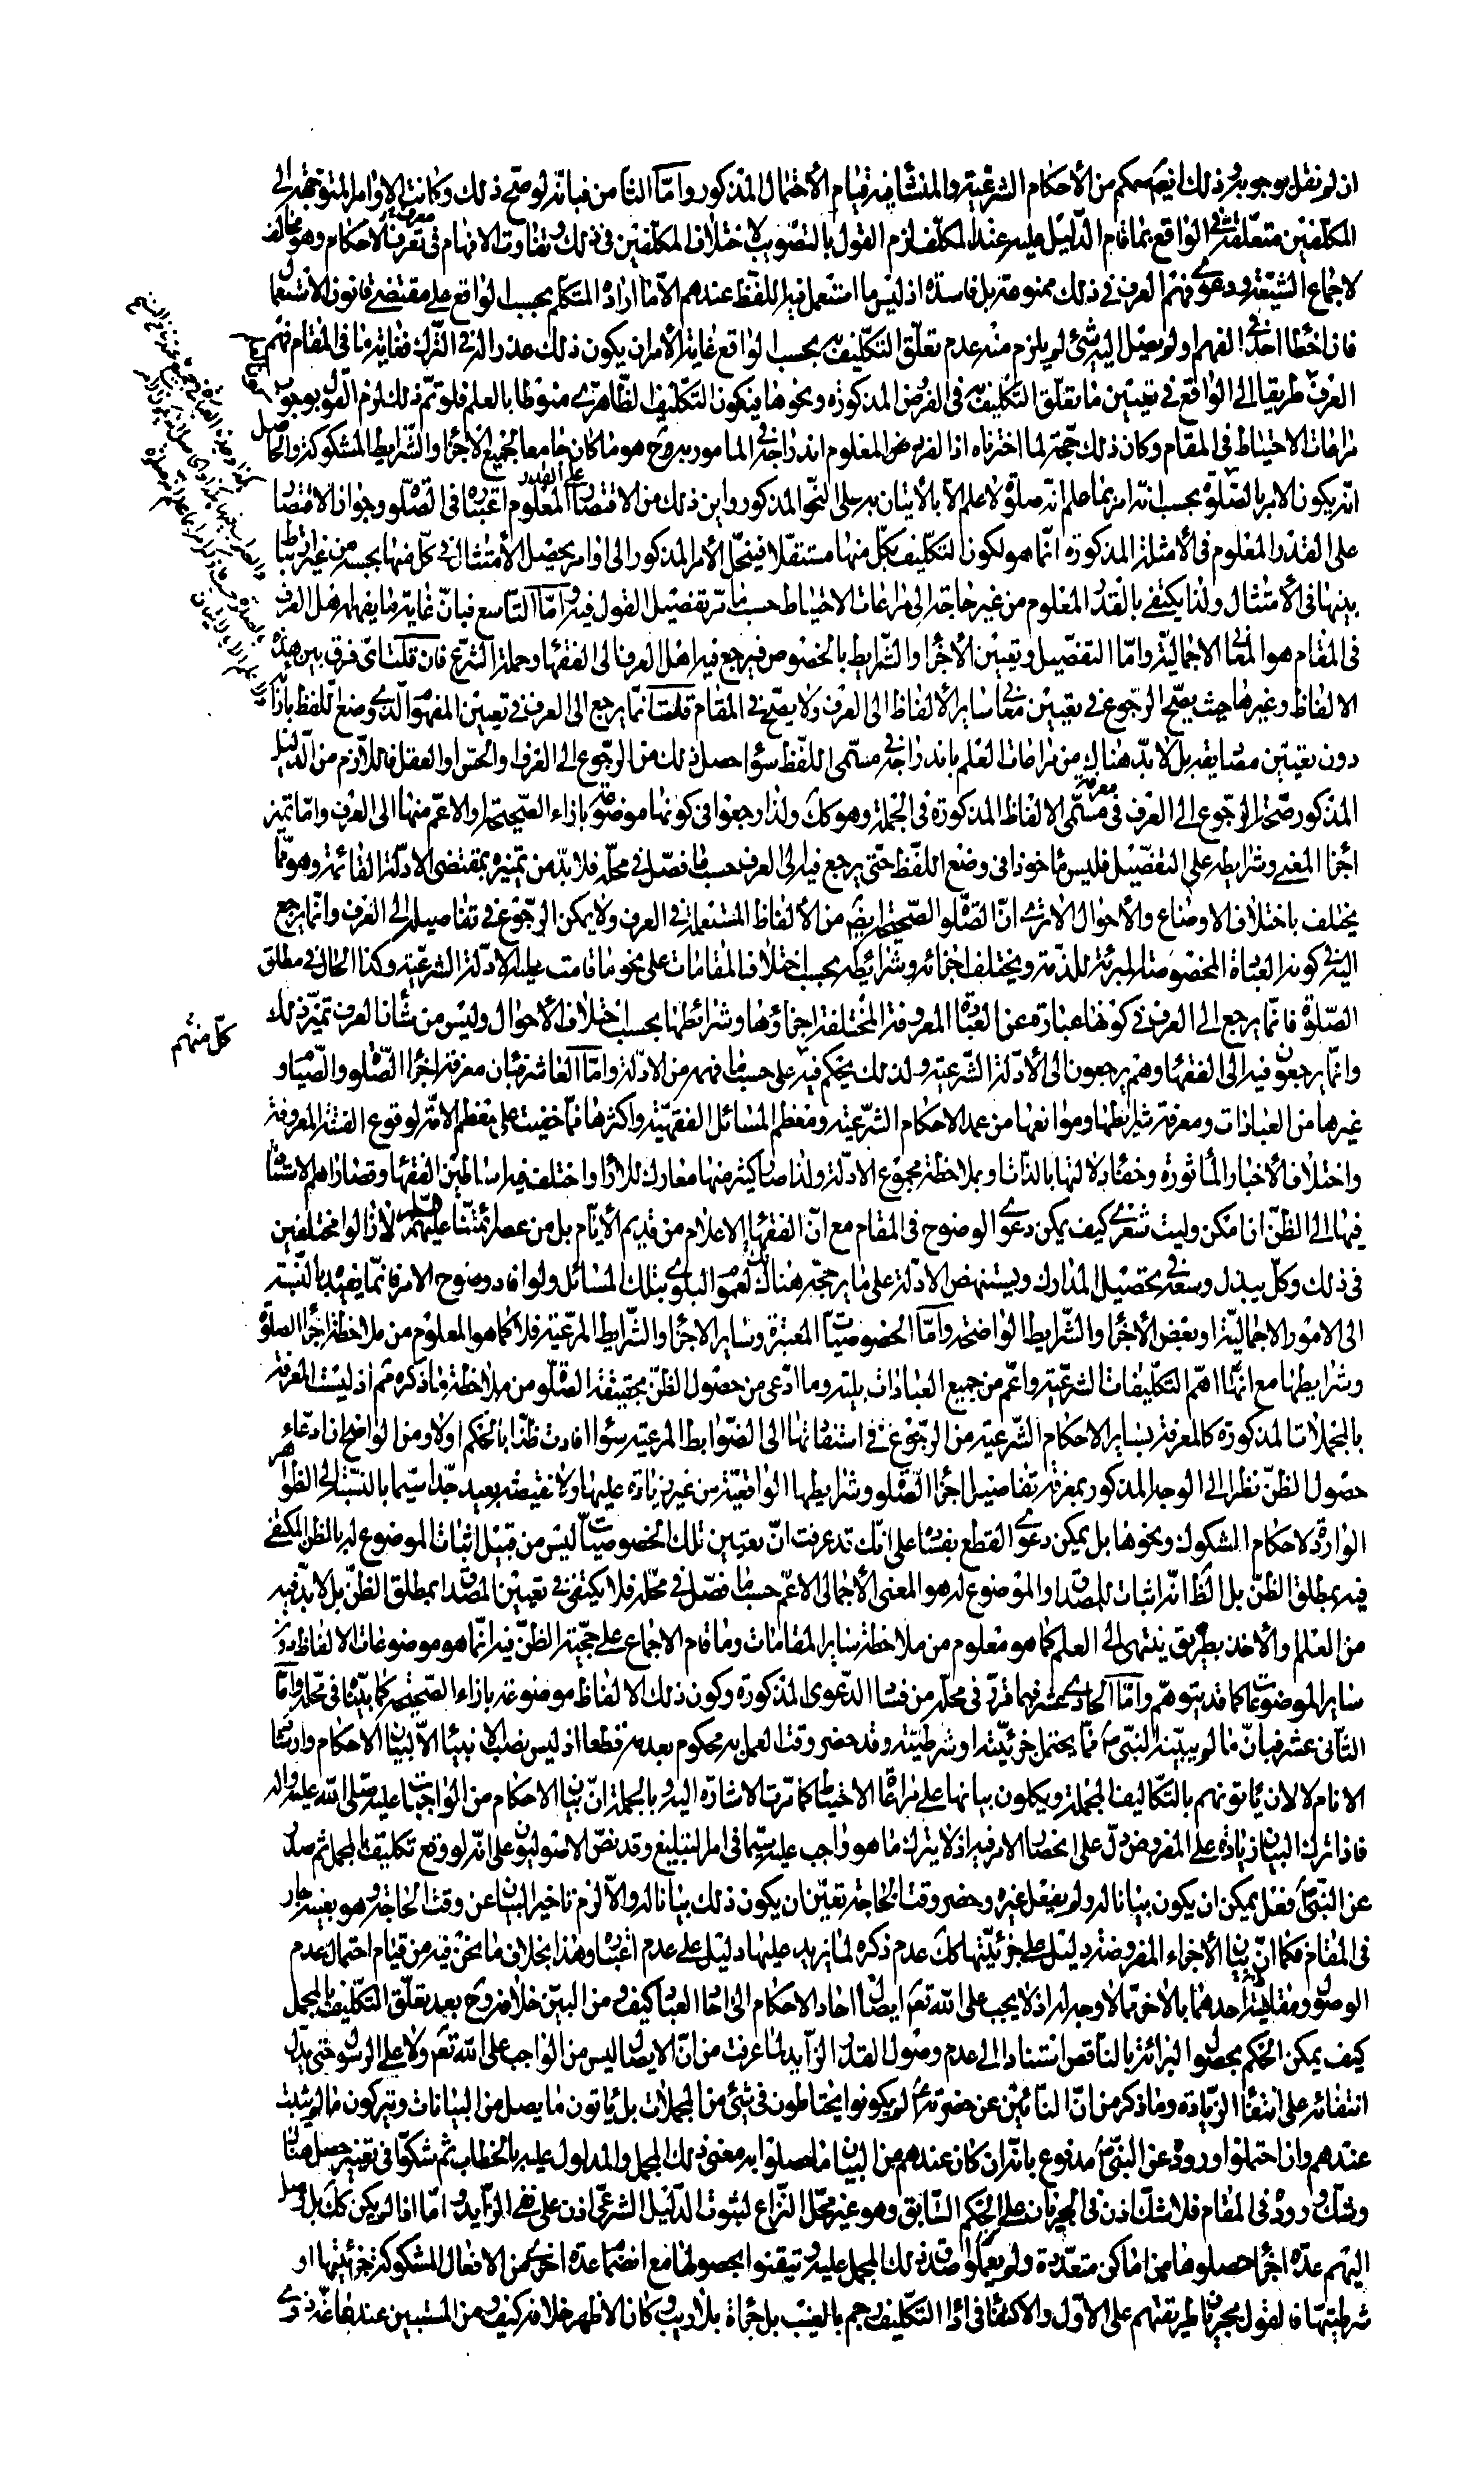 ان لم نقل بوجوبه وذلك انه حكم من الأحكام الشرعية والمنشأ فيه قيام الأحتمال المذكور وامّا الثامن فبانّه لو صحّ ذلك وكانت الاوامر المتوجهة الى
المكلّفين متعلّقة في الواقع بما قام الدّليل عليه عند المكلّف لزم القول بالتصويب لاختلاف المكلّفين في ذلك وتفاوت الافهام في معرفة تعرف الاحكام وهو مخالف
لاجماع الشيعة ودعوى فهم العرف في ذلك ممنوعة بل فاسدة اذ ليس ما استعمل فيه اللفظ عندهم الّا ما اراده المتكلّم بحسب الواقع على مقتضى قانون الاستعمال
فان أخطا احد في الفهم او لم يصل اليه شئ لم يلزم منه عدم تعلّق التكليف به بحسب الواقع غاية الأمر ان يكون ذلك عذرا له في الترك فغاية ما في المقام فهم
العرف طريقا الى الواقع في تعيين ما تعلّق التكليف به في الفرض المذكورة ونحوها فيكون التكليف الظّاهرى منوطا بالعلم فلو تمّ ذلك لزم القول بوجوب
مراعات الاحتياط في المقام وكان ذلك حجّة لما اخترناه اذ الفرض المعلوم اندراجه في المامور به وح هو ما كان جامعا لجميع الاجزاء والشّرايط المشكوكة والحاصل
انّه يكون الامر بالصّلوة بحسب انه امر بما علم انه صلوة ولا علم الّا بالاتيان به على النحو المذكور واين ذلك من الاقتصار على القدر المعلوم اعتباره في الصّلوة وجواز الاقتصار
على القدر المعلوم في الأمثلة المذكورة انّما هو لكون التكليف بكلّ منها مستقلّا فينحلّ الأمر المذكور الى اوامر يحصل الأمتثال في كلّ منها بحسبه من غير ارتباط
بينها في الأمتثال ولذا يكتفى بالقدر المعلوم من غير حاجة الى مراعات الاحتياط حسب ما مرّ تفصيل القول فيه وامّا التاسع فبانّ غاية ما يفهمه اهل العرف
في المقام هو المعانى الاجمالية وامّا التفصيل وتعيين الأجزاء والشّرايط بالخصوص فيرجع فيه اهل العرف الى الفقهاء وحملة الشرع فان قلت اىّ فرق بين هذه
الالفاظ وغيرها حيث يصحّ الرجوع في تعيين معانى ساير الألفاظ الى العرف ولا يصحّ في المقام قلت انّما يرجع الى العرف في تعيين المفهوم الّذى وضع اللّفظ بازائه
دون تعيين مصاديقه بل لا بدّ هناك من مراعات العلم باندراجه في مسمّى اللّفظ سواء حصل ذلك من الرّجوع الى العرف او الحسّ او العقل فاللّازم من الدّليل
المذكور صحّة الرّجوع الى العرف في معرفة مسمّى الالفاظ المذكورة في الجملة وهو كك ولذا رجعوا في كونها موضوعة بازاء الصّحيحة او الاعمّ منها الى العرف وامّا تميز
اجزاء المعنى وشرايطه على التفصيل فليس ماخوذا في وضع اللّفظ حتّى يرجع فيه الى العرف حسب ما فصّل في محلّه فلا بدّ من تميزه بمقتضى الادلّة القائمة وهو ممّا
يختلف باختلاف الاوضاع والأحوال الا ترى انّ الصّلوة الصّحيحة ايضا من الألفاظ المستعملة في العرف ولا يمكن الرّجوع في تفاصيله الى العرف وانّما يرجع
اليه في كونه العبادة المخصوصة المبرئة للذمة ويختلف اجزائه وشرائطه بحسب اختلاف المقامات على نحو ما قامت عليه الادلّة الشرعية وكذا الحال في مطلق
الصّلوة فانّما يرجع الى العرف في كونها عبارة عن العبادة المعروفة المختلفة اجزاؤها وشرائطها بحسب اختلاف الأحوال وليس من شأن العرف تميّز ذلك
كلّ منهم
وانّما يرجعون فيه الى الفقهاء وهم يرجعون الى الأدلّة الشرعية ولذلك يحكم فيه على حسب ما فهمه من الادلّة وامّا العاشر فبان معرفة اجزاء الصّلوة والصّيام و
غيرها من العبادات ومعرفة شرايطها وموانعها من عمد الاحكام الشّرعيّة ومعظم المسائل الفقهيّة واكثرها ممّا خفيت على معظم الامّة لوقوع الفتنة المعروفة
واختلاف الأخبار المأثورة وخفاء دلالتها بالذّات او بملاحظة مجموع الادلّة ولذا صار كثير منها معارك للاراء واختلف فيه اساطين الفقهاء وقصاراهم الاستناد
فيها الى الظّنّ ان امكن وليت شعرى كيف يمكن دعوى الوضوح في المقام مع انّ الفقهاء الاعلام من قديم الأيّام بل من عصر ائمّتنا عليهم السّلم لا زالوا مختلفين
في ذلك وكلّ يبذل وسعه في تحصيل المدارك ويستنهض الادلّة على ما يرجّحه هناك وعموم البلوى بتلك المسائل ولو افاد وضوح الامر فانّما يفيده بالنسبة
الى الامور الاجماليّة او بعض الأجزاء والشّرايط الواضحة وامّا الخصوصيّات المعتبرة وساير الاجزاء والشّرايط المرعية فلا كما هو المعلوم من ملاحظة اجزاء الصلوة
وشرايطها مع انّها اهمّ التكليفات الشرعيّة واعمّ من جميع العبادات بليّة وما ادّعى من حصول الظنّ بحقيقة الصّلوة من ملاحظة ما ذكره ثم اذ ليست المعرفة
بالمجملات المذكورة كالمعرفة بساير الاحكام الشّرعية من الرجوع في استنباطها الى الضّوابط المرعية سواء افادت ظنّا بالحكم اولا ومن الواضح ان ادّعاء
حصول الظنّ نظرا الى الوجه المذكور بمعرفة تفاصيل اجزاء الصّلوة وشرايطها الواقعيّة من غير زيادة عليها ولا نقيصة بعيد جدّا سيّما بالنّسبة الى الظواهر
الواردة لاحكام الشكوك ونحوها بل يمكن دعوى القطع بفساده على انّك قد عرفت انّ تعيين تلك الخصوصيّات ليس من قبيل اثبات الموضوع له بالظن المكتفى
فيه بمطلق الظنّ بل الظ انّه اثبات للمصداق والموضوع له هو المعنى الأجمالى الاعمّ حسب ما فصّل في محلّه فلا يكتفى في تعيين المصداق بمطلق الظنّ بل لا بدّ فيه
من العلم او الأخذ بطريق ينتهى الى العلم كما هو معلوم من ملاحظة ساير المقامات وما قام الاجماع على حجّية الظنّ فيه انّما هو موضوعات الالفاظ دون
ساير الموضوعات كما قد يتوهّم وامّا الحادى عشر فبما قرّر في محلّه من فساد الدّعوى المذكورة وكون ذلك الالفاظ موضوعة بازاء الصّحيحة كما بيّنّا في محلّه وامّا
الثّانى عشر فبانّ ما لم يبيّنه النبّى ص ممّا يحتمل جزئيّته او شرطيّته وقد حضر وقت العمل به محكوم بعدمه قطعا اذ ليس نصب الانبياء الّا لبيان الاحكام وارشاد
الانام لا لان ياتونهم بالتكاليف المجملة ويكلون بيانها على مراعات الاحتياط كما مرّت الاشارة اليه وبالجملة انّ بيان الاحكام من الواجبات عليه صلى اللّه عليه واله
فاذا ترك البيان زيادة على المفروض دلّ على انحصار الامر فيه اذ لا يترك ما هو واجب عليه سيّما في امر التبليغ وقد نصّ الاصوليون على انّه لو وقع تكليف بالمجمل ثم صدر
عن النّبّى ص فعل يمكن ان يكون بيانا له ولم يفعل غيره وحضر وقت الحاجة تعيّن ان يكون ذلك بيانا له والّا لزم تاخير البيان عن وقت الحاجة وهو بعينه جار
في المقام فكما انّ بيان الأجزاء المفروضة دليل على جزئيّتها كك عدم ذكره لما يزيد عليها دليل على عدم اعتباره وهذا بخلاف ما نحن فيه من قيام احتمال عدم
الوصول ومقايسة احدهما بالاخر ممّا لا وجه له اذ لا يجب على اللّه تعالى ايصال احاد الاحكام الى احاد العباد كيف ومن البيّن خلافه وح بعد تعلّق التكليف بالمجمل
كيف يمكن الحكم بحصول البرائة بالناقص استنادا الى عدم وصول القدر الزّايد لما عرفت من انّ الايصال ليس من الواجب على اللّه تعالى ولا على الرسول حتى يدل
انتفائه على انتفاء الزّيادة وما ذكر من انّ النائين عن حضرته ع لم يكونوا يحتاطون في شئ من المجملات بل ياتون ما يصل من البيانات ويتركون ما لم يثبت
عندهم وان احتملوا وروده عن النبّى ص مدفوع بانّه ان كان عندهم من البيان ما حصلوا به معنى ذلك المجمل والمدلول عليه بالخطاب ثم شكّوا في تغيير حصل هناك
وشكّ ورود في المقام فلا شكّ اذن في الجريان على الحكم السّابق وهو غير محلّ النّزاع لثبوت الدّليل الشرعىّ اذن على نفى الزّايد وامّا اذا لم يكن كك بل وصل
اليهم عدّة اجزاء حصلوها من اماكن متعدّدة ولم يعلموا صدق ذلك المجمل عليه ولم يتيقنوا بحصولها مع انضمام عدّة اخرى من الافعال المشكوكة جزئيتها او
شرطيّتها فالقول بجريان طريقتهم على الاوّل والاكتفاء في اداء التكليف رجم بالغيب بل جراة بلا ريب وكان الاظهر خلافه كيف ومن المستبين عندنا عدّة ذوى